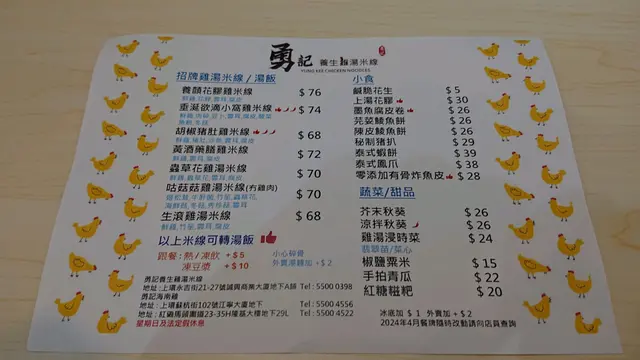 勇記 養生雞湯米線
YUNG KEE CHICKEN NOODLES
招牌雞湯米線 / 湯飯
養顏花膠雞米線 $ 76
垂涎欲滴小窩雞米線 $ 74
胡椒豬肚雞米線 $ 68
黃酒藥膳雞米線 $ 72
蟲草花雞湯米線 $ 70
鮮雞,蟲草花,雲耳,腐皮
咕菇菇雞湯米線(冇雞肉) $ 70
生滾雞湯米線 $ 68
鮮雞,竹笙,雲耳,腐皮
以上米線可轉湯飯
跟餐: 熱 / 凍飲 + $ 5
凍豆漿 + $ 10
小心碎骨
外賣湯麵加 + $ 2
勇記養生雞湯米線
地址 : 上環永吉街21-27號誠興商業大廈地下A舖 Tel : 5500 0398
勇記海南雞
地址 : 上環蘇杭街102號江寧大廈地下 Tel : 5500 4556
地址 : 紅磡馬頭圍道23-35H隆基大樓地下29L Tel : 5500 4522
星期日及法定假休息
小食
鹹脆花生 $ 5
上湯花膠 $ 30
墨魚腐皮卷 $ 26
芫荽鯪魚餅 $ 26
陳皮鯪魚餅 $ 26
秘制豬扒 $ 29
泰式蝦餅 $ 39
泰式鳳爪 $ 38
零添加有骨炸魚皮 $ 28
蔬菜/甜品
芥末秋葵 $ 26
涼拌秋葵 $ 26
雞湯浸時菜 $ 24
翡翠苗/菜心
椒鹽粟米 $ 15
手拍青瓜 $ 22
紅糖糍粑 $ 20
冰底加 $ 1 外賣加 + $ 2
2024年4月餐牌隨時改動請向店員查詢